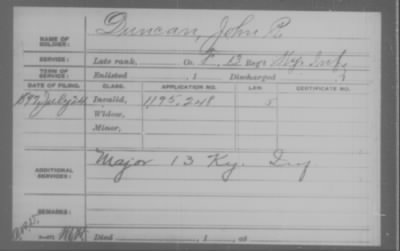 NAME OF SOLDIER: Duncan, John R.
SERVICE: Late rank, Co. F, 12 Reg't Ky. Inf.
TERM OF SERVICE: Enlisted , 1 Discharged , 1
DATE OF FILING. CLASS. APPLICATION NO. LAW. CERTIFICATE NO.
1897, July 24 Invalid, 1195,248
Widow,
Minor,
ADDITIONAL SERVICES: Major 13 Ky. Inf
REMARKS:
Died , 1 , at